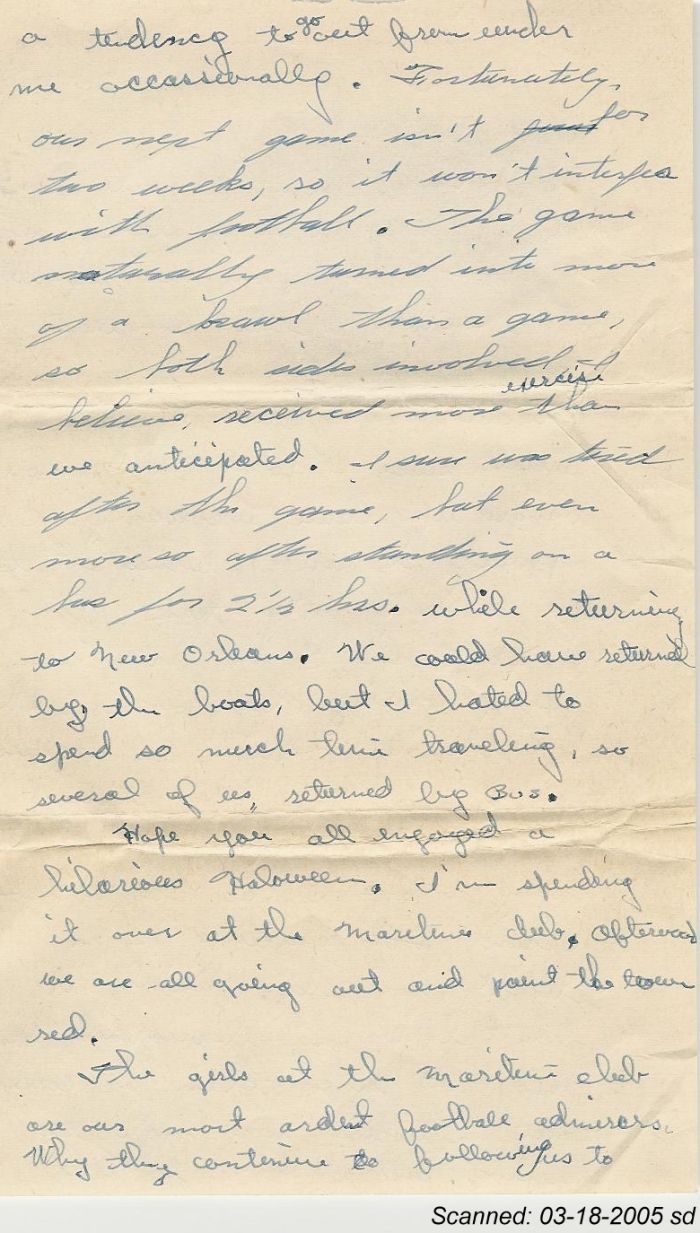 a tendency to go out from under
me occassionally. Fortunately,
our next game isn't for
two weeks, so it won't interfea
with football. The game
naturally turned into more
of a brawl than a game,
so both sides involved I
believe, received more exercise than
we anticipated. I sure was tired
after the game, but even
more so after standing on a
bus for 2 1/2 hrs. while returning
to New Orleans. We could have returned
by the boats, but I hated to
spend so much time traveling, so
several of us, returned by Bus.
Hope you all engoyed a
hilarious Haloween. I'm spending
it over at the Maritime club. Afterward
we are all going out and paint the town
red.
The girls at the Maritime club
are our most ardent football admirers.
Why they continue to following us to
Scanned: 03-18-2005 sd